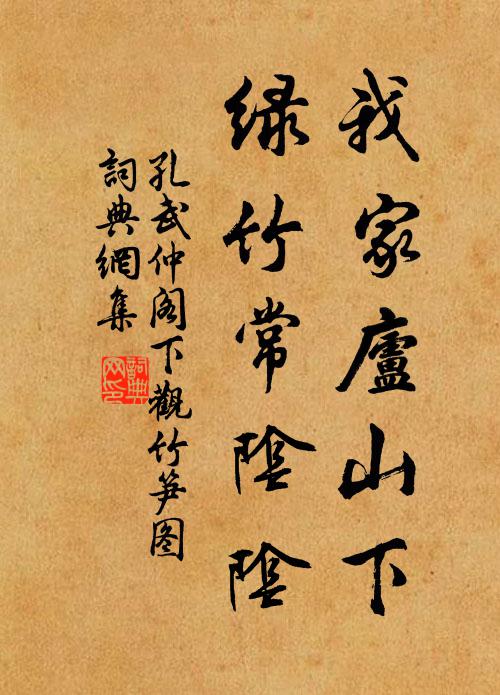 我家廬山下
緑竹常陰陰
孔武仲阁下觀竹笋图
詞典網集
詞典网印